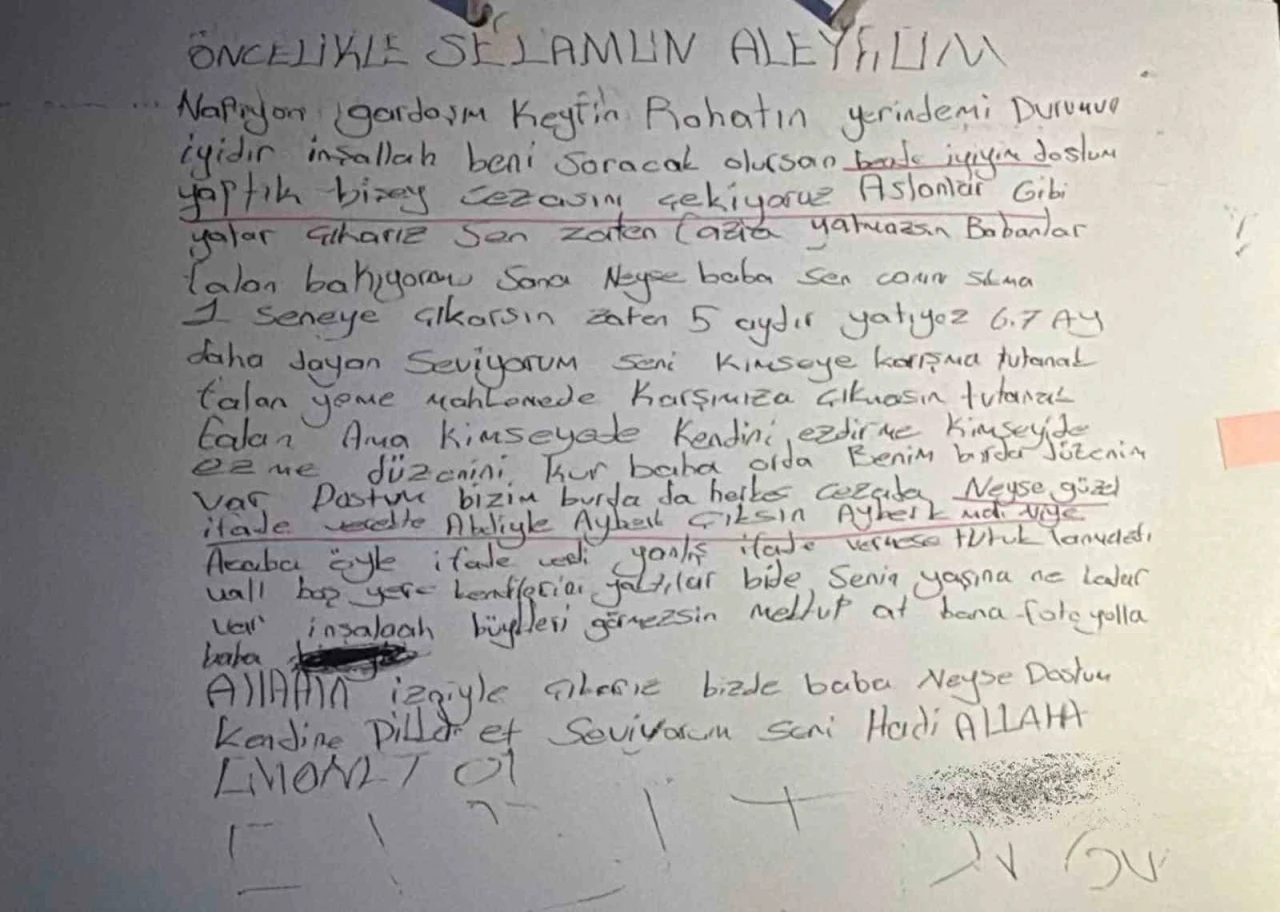 ÖNCELİKLE SELAMUN ALEYKUM
Napıyon gardaşım Keyfin Rohatın yerindemi Durumun
iyidir inşallah beni soracak olursan bende iyiyim dostum
yaptık bizey cezasını çekiyoruz Aslanlar Gibi
yatar çıkarız Sen zaten fazla yatmazsın Babanlar
falan bakıyorm Sana Neyse baba sen canın sıkma
1 Seneye çıkarsın zaten 5 aydır yatıyoz 6.7 Ay
daha dayan Seviyorum seni Kimseye karışma tutanak
falan yeme mahkemede Karşımıza çıkmasın tutanak
falan Ama kimseyede Kendini ezdirme Kimseyide
ezme düzenini kur baba orda Benim burda düzenim
var Dostum bizim burda da herkes cezada Neyse güzel
ifade Abeliyle Ayberk Çıksın Ayberk
Acaba öyle ifade verdi yanlış ifade vermese tutuk
vall boş yere yattılar bide Senin yaşına ne kadar
var inşalaah büyükleri görmezsin mektup at bana foto yolla
baba
Allahın izniyle çıkarız bizde baba Neyse Dostum
Kendine Dikkat et Seviyorum seni Hadi ALLAHA
EMONET Ol